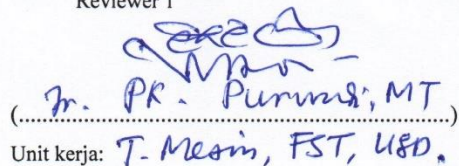 Reviewer 1
(Ir. PK. Purwadi, MT)
Unit kerja: T. Mesin, FST, USD.